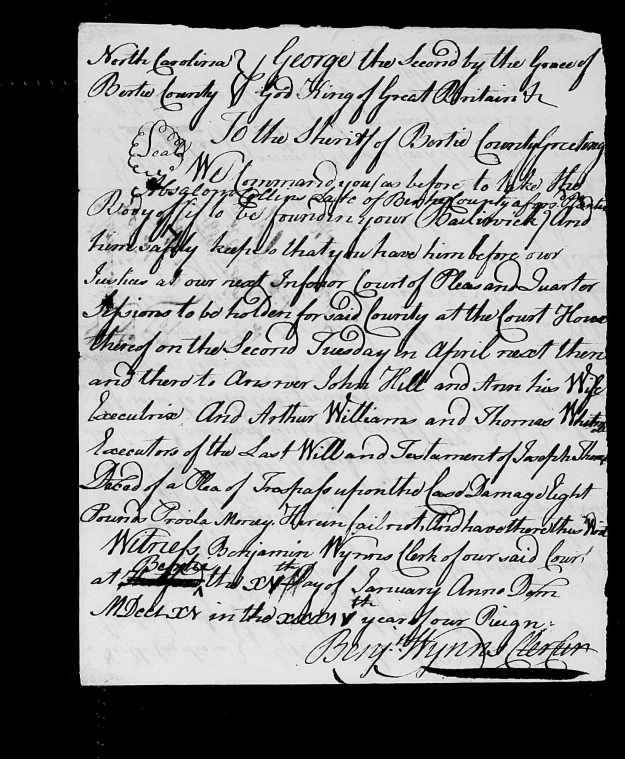 North Carolina } George the Second by the Grace of
Bertie County } God King of Great Britain &c
To the Sheriff of Bertie County Greeting
Seal
We Command you (as before to take the
Absalom Collins Late of Bertie County afores.d
Body of (if to be found in your Bailiwick) And
him safely keep so that you have him before our
Justices at our next Inferior Court of Pleas and Quarter
Sessions to be holden for said County at the Court House
thereof on the Second Tuesday in April next then
and there to Answer John Hill and Ann his Wife
Executrix And Arthur Williams and Thomas
Executors of the Last Will and Testament of Joseph
Deced of a Plea of Trespass upon the Case Damage Eight
Pounds Procla Money. Herein fail not, And have there this Writ
Witness Benjamin Wynns Clerk of our said Court
Bertie
at the XVth Day of January Anno Dom
in the year of our Reign.
Benj.n Wynns Cler Cur